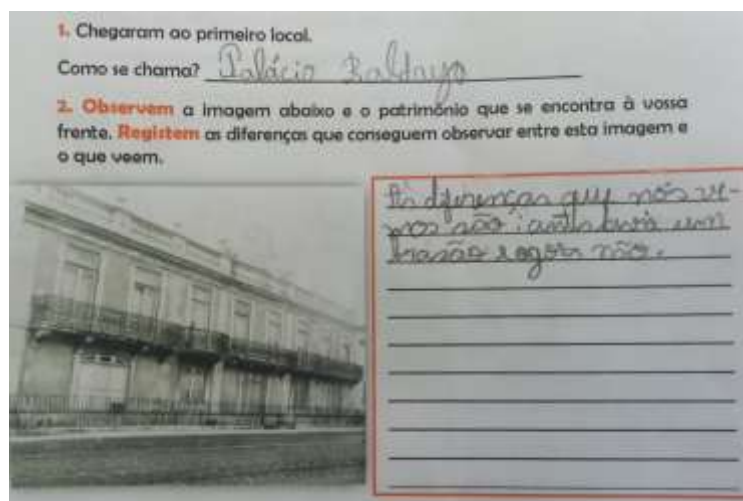 1. Chegaram ao primeiro local.
Como se chama? Palácio Baldaya
2. Observem a imagem abaixo e o património que se encontra à vossa
frente. Registem as diferenças que conseguem observar entre esta imagem e
o que veem.
As diferenças que nós ve-
mos são: antes havia um
brasão e agora não.